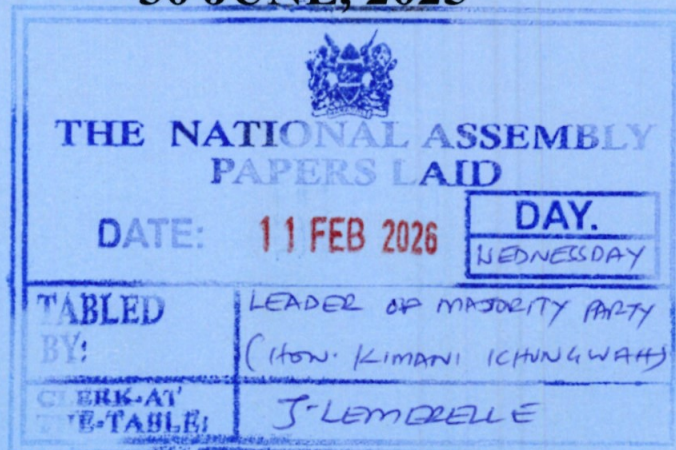 30 JUNE, 2025
THE NATIONAL ASSEMBLY
PAPERS LAID
DATE: 11 FEB 2026
DAY.
WEDNESDAY
TABLED BY: LEADER OF MAJORITY PARTY
(HON. KIMANI ICHUNGWAH)
CLERK-AT THE-TABLE: J. LEMERELLE